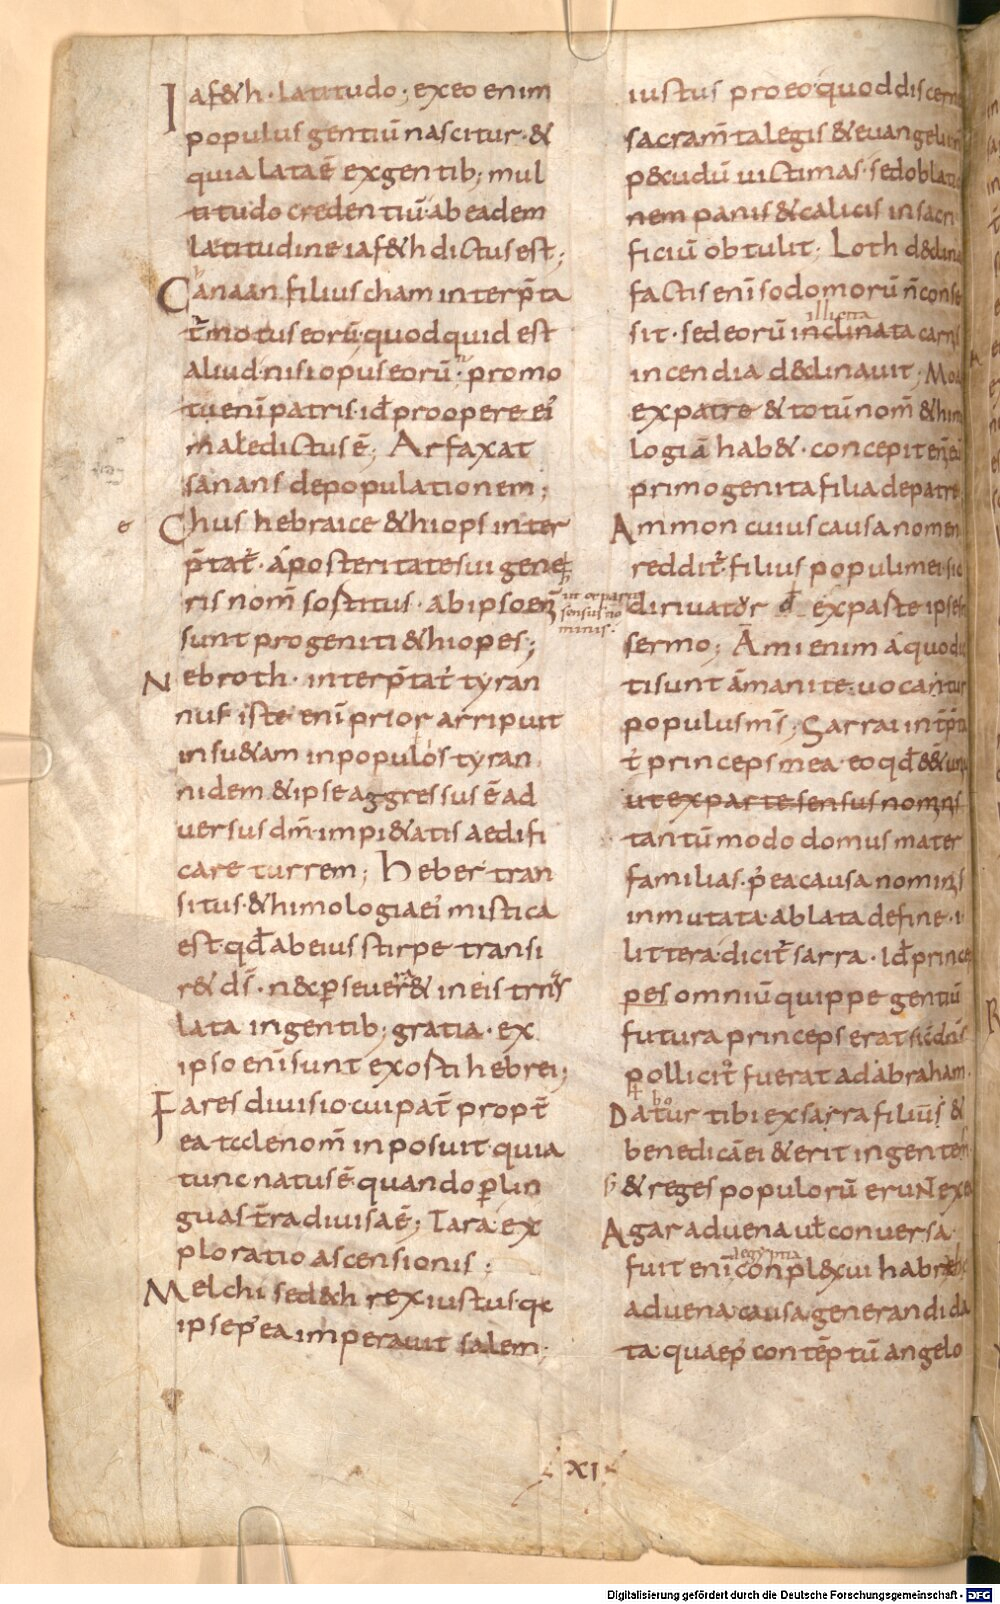 Iaf&h· Latitudo; ex eo enim
populus gentiū nascitur· &
quia lataē ex gentib; mul
titudo credentiū ab eadem
latitudine iaf&h dictus est;
Canaan filius cham interp̄ta
t̄ motus eorū· quod quid est
aliud nisi opus eorū· promo
tu enī patris· id̄ pro opere ei'
maledictus ē; Arfaxat
sanans depopulationem;
Chus hebraice &hiops inter
p̄tat̄· a posteritate sui gene
ris nom̄ sortitus· ab ipso en̄
sunt progeniti &hiopes;
Nebroth· interp̄tat̄ tyran
nus iste enī prior arripuit
insu&am in populos tyran
nidem & ipse aggressus ē ad
uersus dm̄ impi&atis aedifi
care turrem; Heber tran
situs· & himologia ei' mistica
est· qd̄ ab eius stirpe transi
r& ds̄· nec p̱seuer& in eis trns
lata in gentib; gratia· ex
ipso enī sunt exosti hebrei;
Fares diuisio· cui pat̄ propt̄
ea tcclenom̄ inposuit· quia
tunc natus ē quando p̱ lin
guas t̄ra diuisa ē; Tara ex
ploratio ascensionis;
Melchised&h rex iustus· qc
ipse p' ea imperauit salem·
ut ex parte
sensus no
minis·
iustus pro eo quod
sacram̄ta legis & euangelii
p&udū uictimas· sed
nem panis & calicis in sacri
ficiū obtulit; Loth
factis enī sodomorū n̄
sit· sed eorū inclinata carnis
incendia d&linauit;
ex patre & totū nom̄
logiā hab&· concepit en̄
primogenita filia de patre
Ammon cuius causa nomen
reddit̄· filius populi mei· sic
diriuator d̄ ex paste
sermo; Āmi enim a quo
ti sunt āmanite uocantur
populus ms̄; Sarrai intp̄ta
t̄ princeps mea· eo qd̄
ut ex parte sensus nominis
tantū modo domus mater
familias· p' ea causa nominis
inmutata· ablata de fine· i·
littera· dicit̄ sarra· Id̄ prince
pes omniū quippe gentiū
futura princeps erat sic dn̄s
pollicit' fuerat ad abraham·
Datur tibi ex sarra filius &
benedicā ei & erit in gentes
& reges populorū eruN ex eo
Agar aduena ul̄ conuersa·
aegyptia
fuit enī conpl&xui
aduena causa generandi da
ta· quae p' contēptū angelo
·XI·
Digitalisierung gefördert durch die Deutsche Forschungsgemeinschaft - DFG